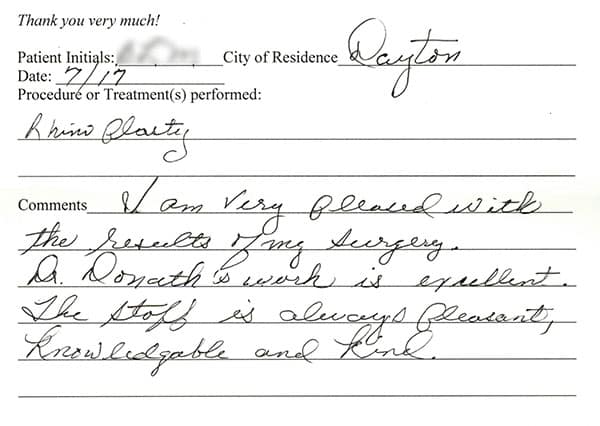 Thank you very much!
Patient Initials: City of Residence Dayton
Date: 7/17
Procedure or Treatment(s) performed:
Rhino Plasty
Comments I am very pleased with
the results of my surgery.
Dr. Donath's work is excellent.
The staff is always pleasant,
knowledgable and kind.